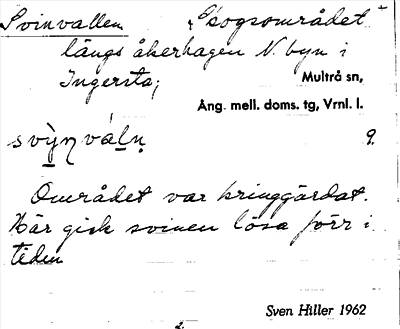 Svinvallen, Skogsområdet
längs åkerhagen N. byn i
Ingersta;
Multrå sn,
Ång. mell. doms. tg, Vrnl. l.
9.
Området var kringgärdat.
Här gick svinen lösa förr i
tiden
Sven Hiller 1962
2.